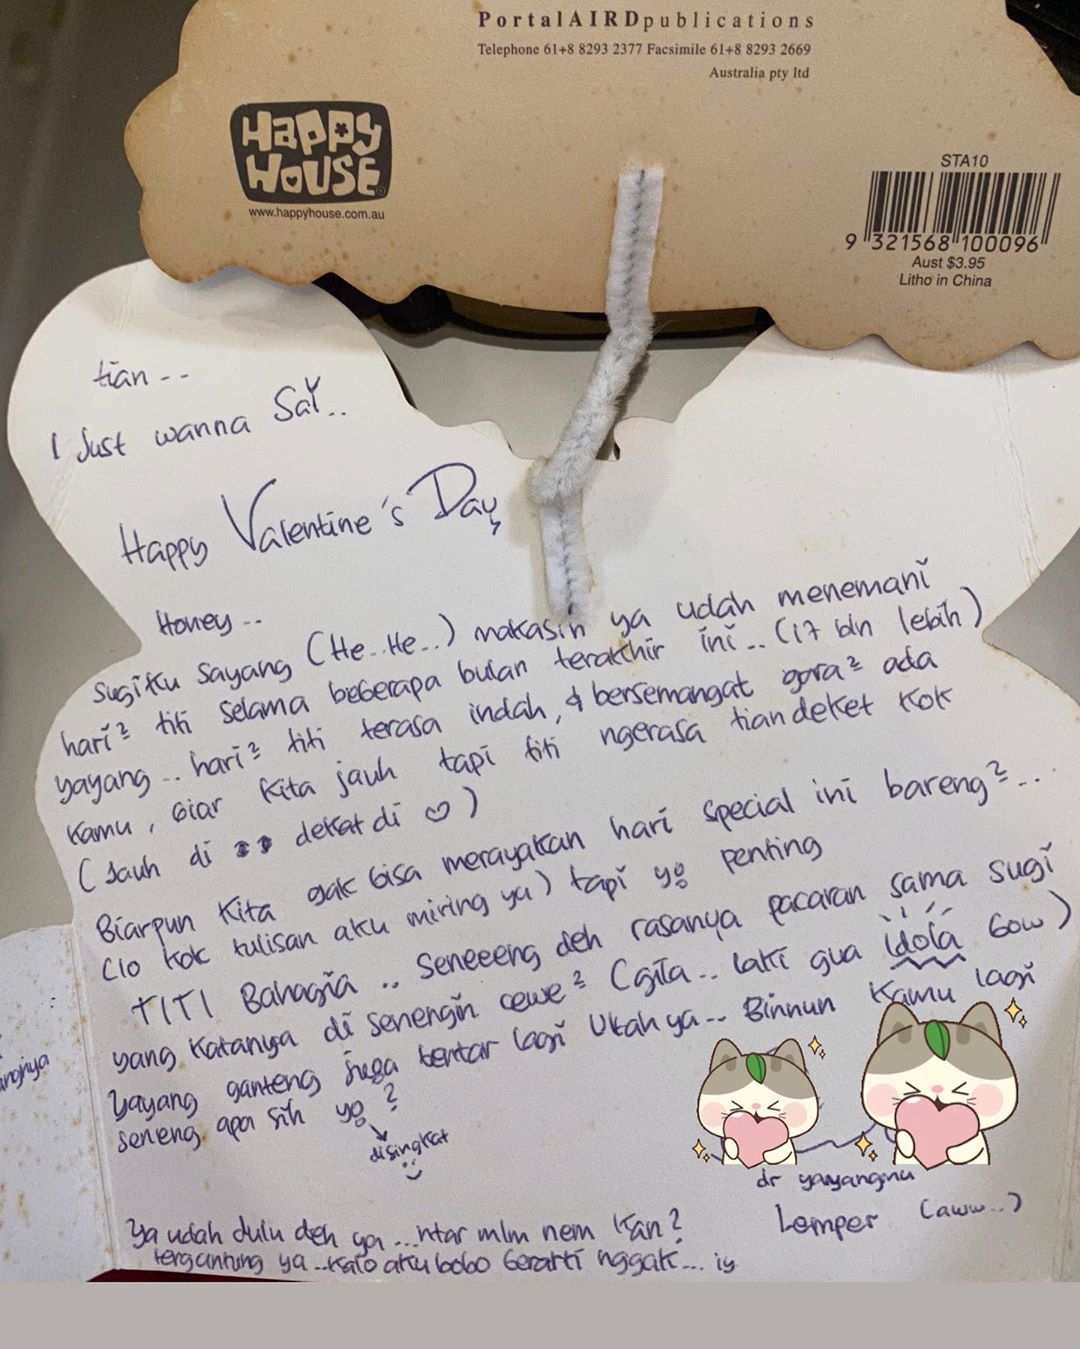 PortalAIRDpublications
Telephone 61+8 8293 2377 Facsimile 61+8 8293 2669
Australia pty ltd
Happy
House
www.happyhouse.com.au
STA10
9 321568 100096
Aust $3.95
Litho in China
tian --
I Just wanna Say..
Happy Valentine's Day
Honey..
sugiku sayang (He..He..) makasih ya udah menemani
hari² titi selama beberapa bulan terakhir ini.. (17 bln lebih)
yayang.. hari² titi terasa indah, & bersemangat gara² ada
kamu, biar kita jauh tapi titi ngerasa tian deket kok
(Jauh di dekat di ♡)
Biarpun kita gak bisa merayakan hari special ini bareng²...
(lo kok tulisan aku miring ya) tapi yg penting
TITI Bahagia.. seneeeng deh rasanya pacaran sama sugi
yang katanya di senengin cewe² (gila.. laki gua idola bow)
yayang ganteng juga bentar lagi Ultah ya.. Binnun kamu lagi
seneng apa sih yg?
disingkat
dr yayangmu
Lemper (aww..)
Ya udah dulu deh ya...ntar mlm nem kan?
tergantung ya..kalo aku bobo berarti nggak...